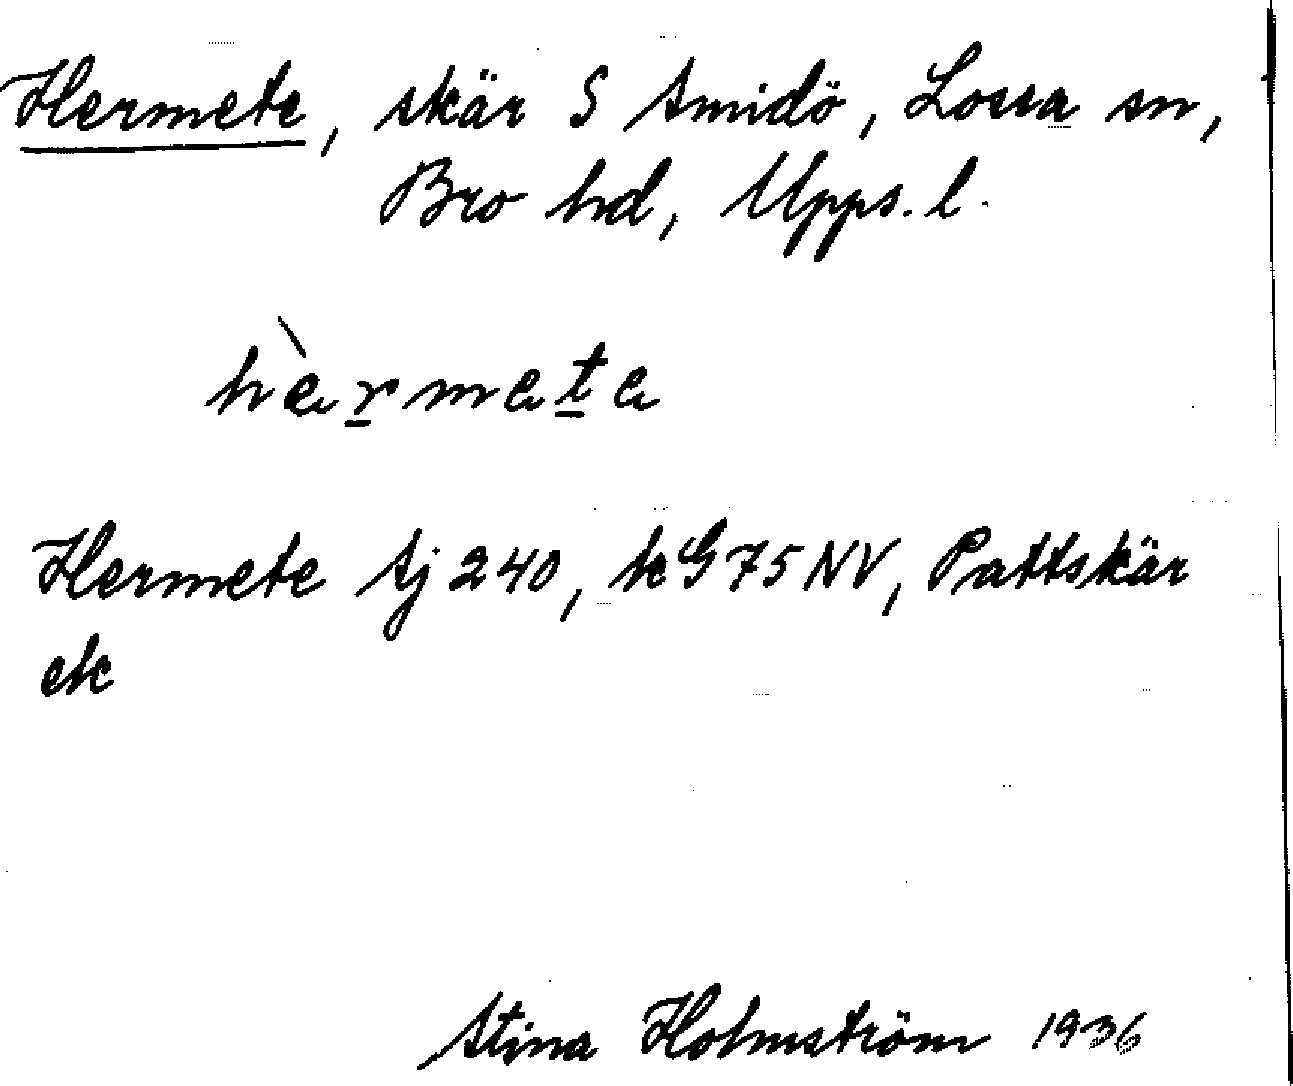 Hermete, skär S Smidö, Lossa sn,
Bro hd, Upps. l.
hèrmete
Hermete Sj 240, kG 75 NV, Pattskär
ek
Stina Holmström 1936